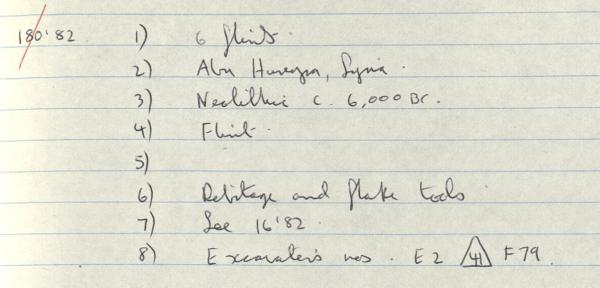 180'82 1) 6 flints.
2) Abu Hureyra, Syria.
3) Neolithic c. 6,000 BC.
4) Flint.
5)
6) Debitage and flake tools.
7) See 16'82.
8) Excavater's nos. E2 41 F79